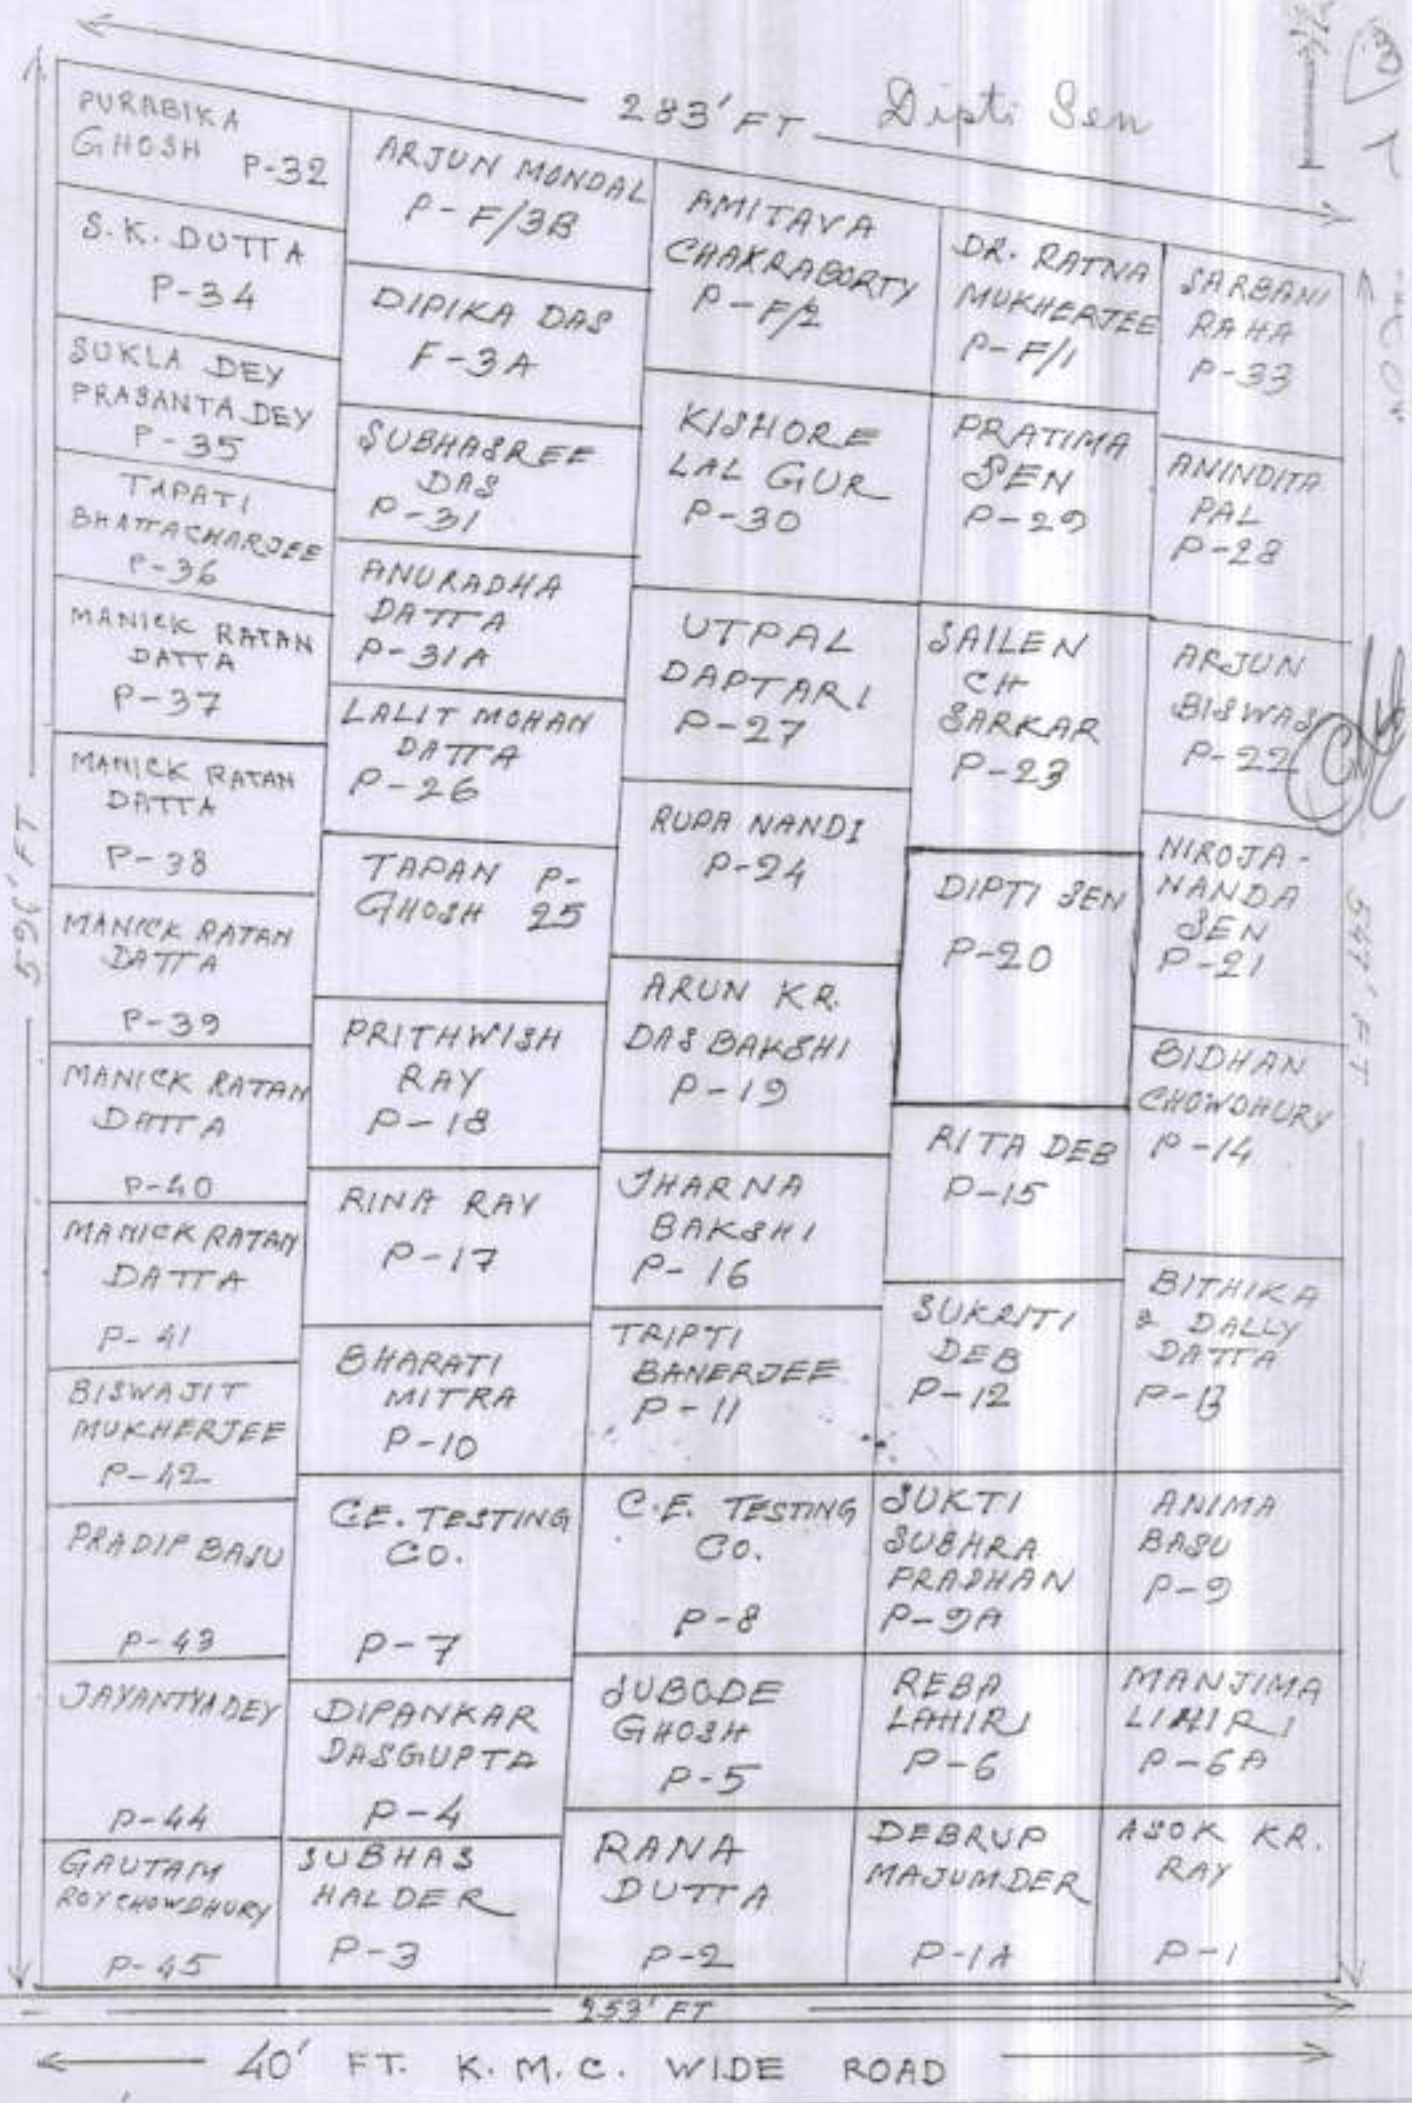 283' FT
Dipti Sen
PURABIKA
GHOSH P-32
S.K. DUTTA
P-34
SUKLA DEY
PRASANTA DEY
P-35
TAPATI
BHATTACHARJEE
P-36
MANICK RATAN
DATTA
P-37
MANICK RATAN
DATTA
P-38
MANICK RATAN
DATTA
P-39
MANICK RATAN
DATTA
P-40
MANICK RATAN
DATTA
P-41
BISWAJIT
MUKHERJEE
P-42
PRADIP BASU
P-43
JAYANTYA DEY
P-44
GAUTAM
ROYCHOWDHURY
P-45
ARJUN MONDAL
P-F/3B
DIPIKA DAS
F-3A
SUBHASREE
DAS
P-31
ANURADHA
DATTA
P-31A
LALIT MOHAN
DATTA
P-26
TAPAN P-
GHOSH 25
PRITHWISH
RAY
P-18
RINA RAY
P-17
BHARATI
MITRA
P-10
C.E. TESTING
CO.
P-7
DIPANKAR
DASGUPTA
P-4
SUBHAS
HALDER
P-3
AMITAVA
CHAKRABORTY
P-F/2
KISHORE
LAL GUR
P-30
UTPAL
DAPTARI
P-27
RUPA NANDI
P-24
ARUN KR.
DAS BAKSHI
P-19
JHARNA
BAKSHI
P-16
TRIPTI
BANERJEE
P-11
C.E. TESTING
CO.
P-8
SUBODE
GHOSH
P-5
RANA
DUTTA
P-2
DR. RATNA
MUKHERJEE
P-F/1
PRATIMA
SEN
P-29
SAILEN
CH
SARKAR
P-23
DIPTI SEN
P-20
RITA DEB
P-15
SUKRITI
DEB
P-12
SUKTI
SUBHRA
PRADHAN
P-9A
REBA
LAHIRI
P-6
DEBRUP
MAJUMDER
P-1A
SARBANI
RAHA
P-33
ANINDITA
PAL
P-28
ARJUN
BISWAS
P-22
NIROJA-
NANDA
SEN
P-21
BIDHAN
CHOWDHURY
P-14
BITHIKA
& DALLY
DATTA
P-13
ANIMA
BASU
P-9
MANJIMA
LIHIRI
P-6A
ASOK KR.
RAY
P-1
596' FT
547' FT
253' FT
40' FT. K.M.C. WIDE ROAD